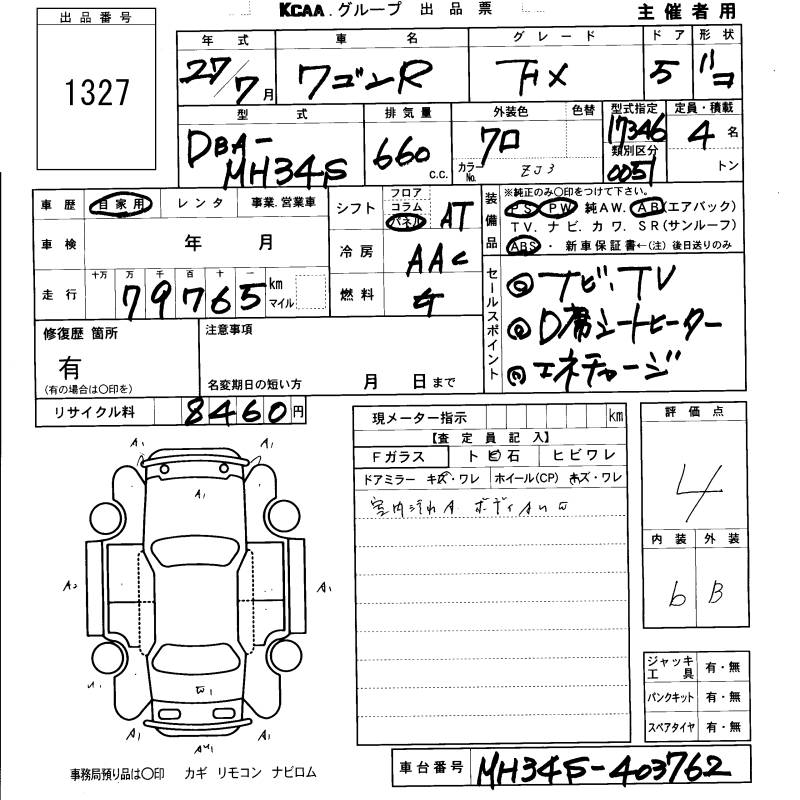 KCAA.グループ 出品票 主催者用
出品番号
1327
年式 車名 グレード ドア 形状
27/7月 ワゴンR FX 5 バコ
型式 排気量 外装色 色替 型式指定 定員・積載
DBA-MH34S 660 c.c. クロ 17346 4名
カラーNo. ZJ3 類別区分 0051 トン
車歴 自家用 レンタ 事業.営業車
シフト フロア コラム パネル AT
車検 年 月
冷房 AAC
走行 十万 万 千 百 十 一
79765 km マイル
燃料
装備品 ※純正のみ〇印をつけて下さい。
PS PW 純AW. AB(エアバック)
TV. ナビ. カワ. SR(サンルーフ)
ABS ・ 新車保証書←(注) 後日送りのみ
セールスポイント
◎ ナビ.TV
◎ D席シートヒーター
◎ エネチャージ
修復歴 箇所
有
(有の場合は〇印を)
注意事項
名変期日の短い方 月 日まで
リサイクル料 8460円
現メーター指示 km
【査定員記入】
Fガラス トビ石 ヒビワレ
ドアミラー キズ・ワレ ホイール(CP) キズ・ワレ
室内汚れA ボディAUW
評価点
4
内装 外装
b B
A1 A1
A1
A2 A1
A1
W1
A1 A1
AU1
ジャッキ工具 有・無
パンクキット 有・無
スペアタイヤ 有・無
事務局預り品は〇印 カギ リモコン ナビロム
車台番号 MH34S-403762